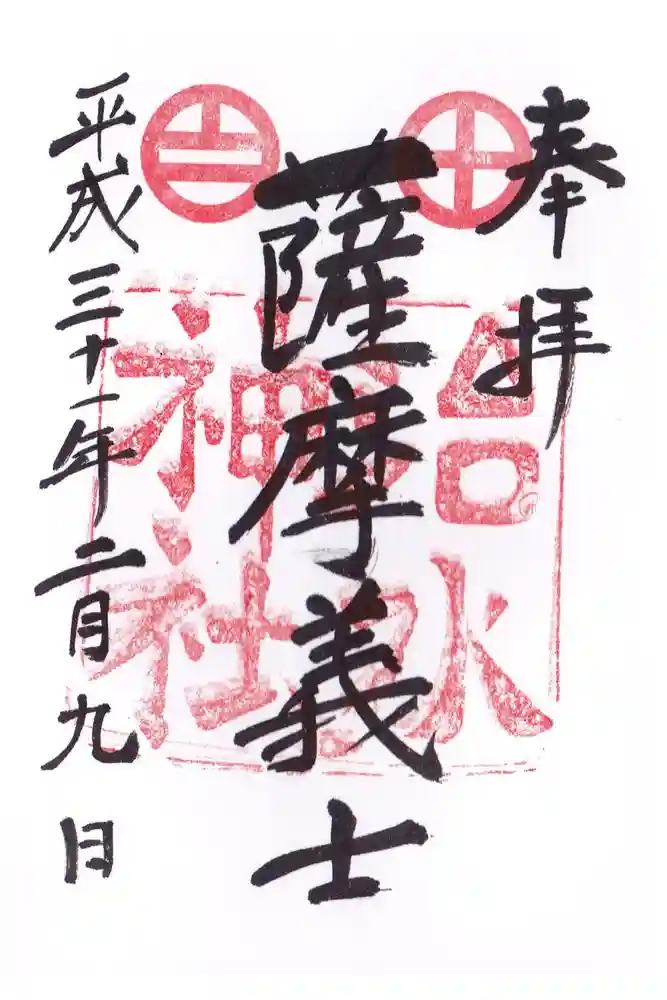 奉拝
薩摩義士
治水
神社
平成三十一年二月九日